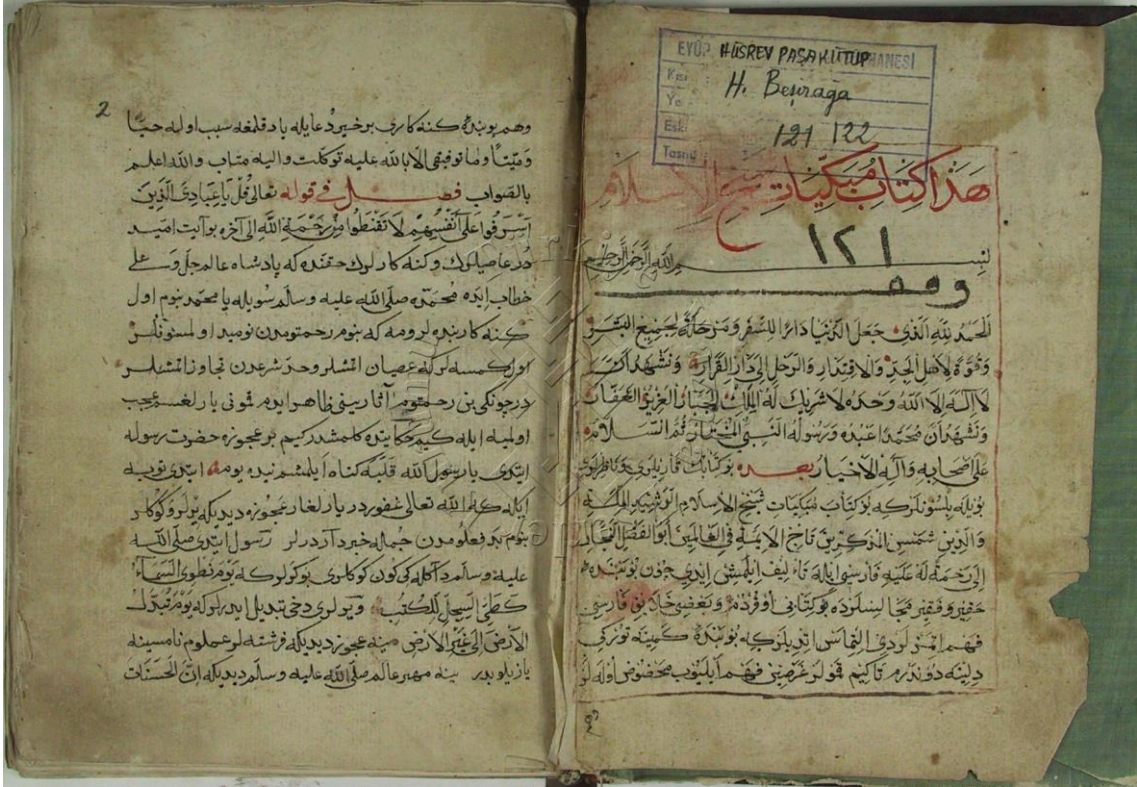 EYÜP HÜSREV PAŞA KÜTÜPHANESİ
H. Beşirağa
Eski 121 122
Tasnif
هذا كتاب مبكيات شيخ الإسلام
١٢١
بسم الله الرحمن الرحيم
وقف
الحمد لله الذي جعل الدنيا دار السفر ومرحلة لجميع البشر
وقوة لاهل الجد والاقتدار والرحل الى دار القرار ونشهد ان
لا اله الا الله وحده لا شريك له الملك الجبار العزيز الغفار
ونشهد ان محمدا عبده ورسوله النبي المختار ثم السلام
على اصحابه وآله الاخيار بعده بو كتابك
بويله بلسونلركه بو كتاب مبكيات شيخ الاسلام الملة
والدين شمس المذكرين تاج الايمة في العالمين ابو الفضل
رحمة الله عليه فارسى ايله تاءليف ايلمشى ايدى چون بو بنده
حقير و فقير مجلسلرده بو كتابى اوقردم و بعضى خلايق فارسى
فهم اتمزلردى التماس اتديلركه بو بنده كمينه توركى
دلينه دوندرم تا كيم قولر غرضين فهم ايليوب محضوض اوله لر
2
وهم بو بنده كنه كارى بر خير دعا ايله ياد قلمغه سبب اوله حيا
وميتا وما توفيقى الا بالله عليه توكلت واليه متاب والله اعلم
بالصواب فصل في قوله تعالى قل يا عبادى الذين
اسرفوا على انفسهم لا تقنطوا من رحمة الله الى آخره بو آيت اميد
در عاصيلرك وكنه كارلرك حقنده كه پادشاه عالم جل وعلى
خطاب ايده محمده صلى الله عليه وسلم سويله يا محمد بنوم اول
كنه كار بنده لرومه كه بنوم رحمتومدن نوميد اولمسونلر
اول كمسه لركه عصيان اتمشلر وحد شرعدن تجاوز اتمشلر
در چونكى بن رحمتوم آثارينى ظاهر ايدم شونى يارلغم عجب
اولميه ايله كيم حكايتده كلمشدر كيم بر عجوزه حضرت رسوله
ايتدى يا رسول الله قلبه كناه ايلمشم نيده يومه ايتدى توبه
ايله كه الله تعالى غفوردر يارلغار عجوزه ديديكه يرلر و كوكلر
بنوم بد فعلومدن جماله خبردآردرلر رسول ايتدى صلى الله
عليه وسلم دآكله كى كون كوكلرى بوكرلركه يوم نطوى السماء
كطى السجل للكتب ويرلرى دخى تبديل ايدرلركه يوم تبدل
الارض الى غير الارض ينه عجوز ديديكه فرشته لر عملوم نامسينه
يازيلوبدر ينه مهتر عالم صلى الله عليه وسلم ديديكه ان الحسنات